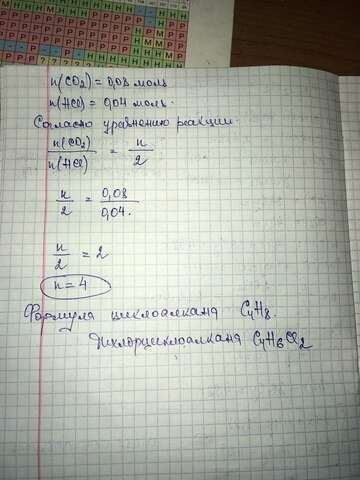 n(CO₂) = 0,08 моль
n(HCl) = 0,04 моль.
Согласно уравнению реакции
n(CO₂)/n(HCl) = n/2
n/2 = 0,08/0,04.
n/2 = 2
n = 4
Формула циклоалкана C₄H₈.
Дихлорциклоалкана C₄H₆Cl₂